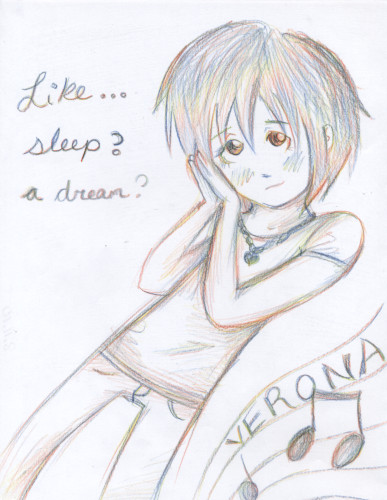 Like...
sleep?
a dream?
VERONA